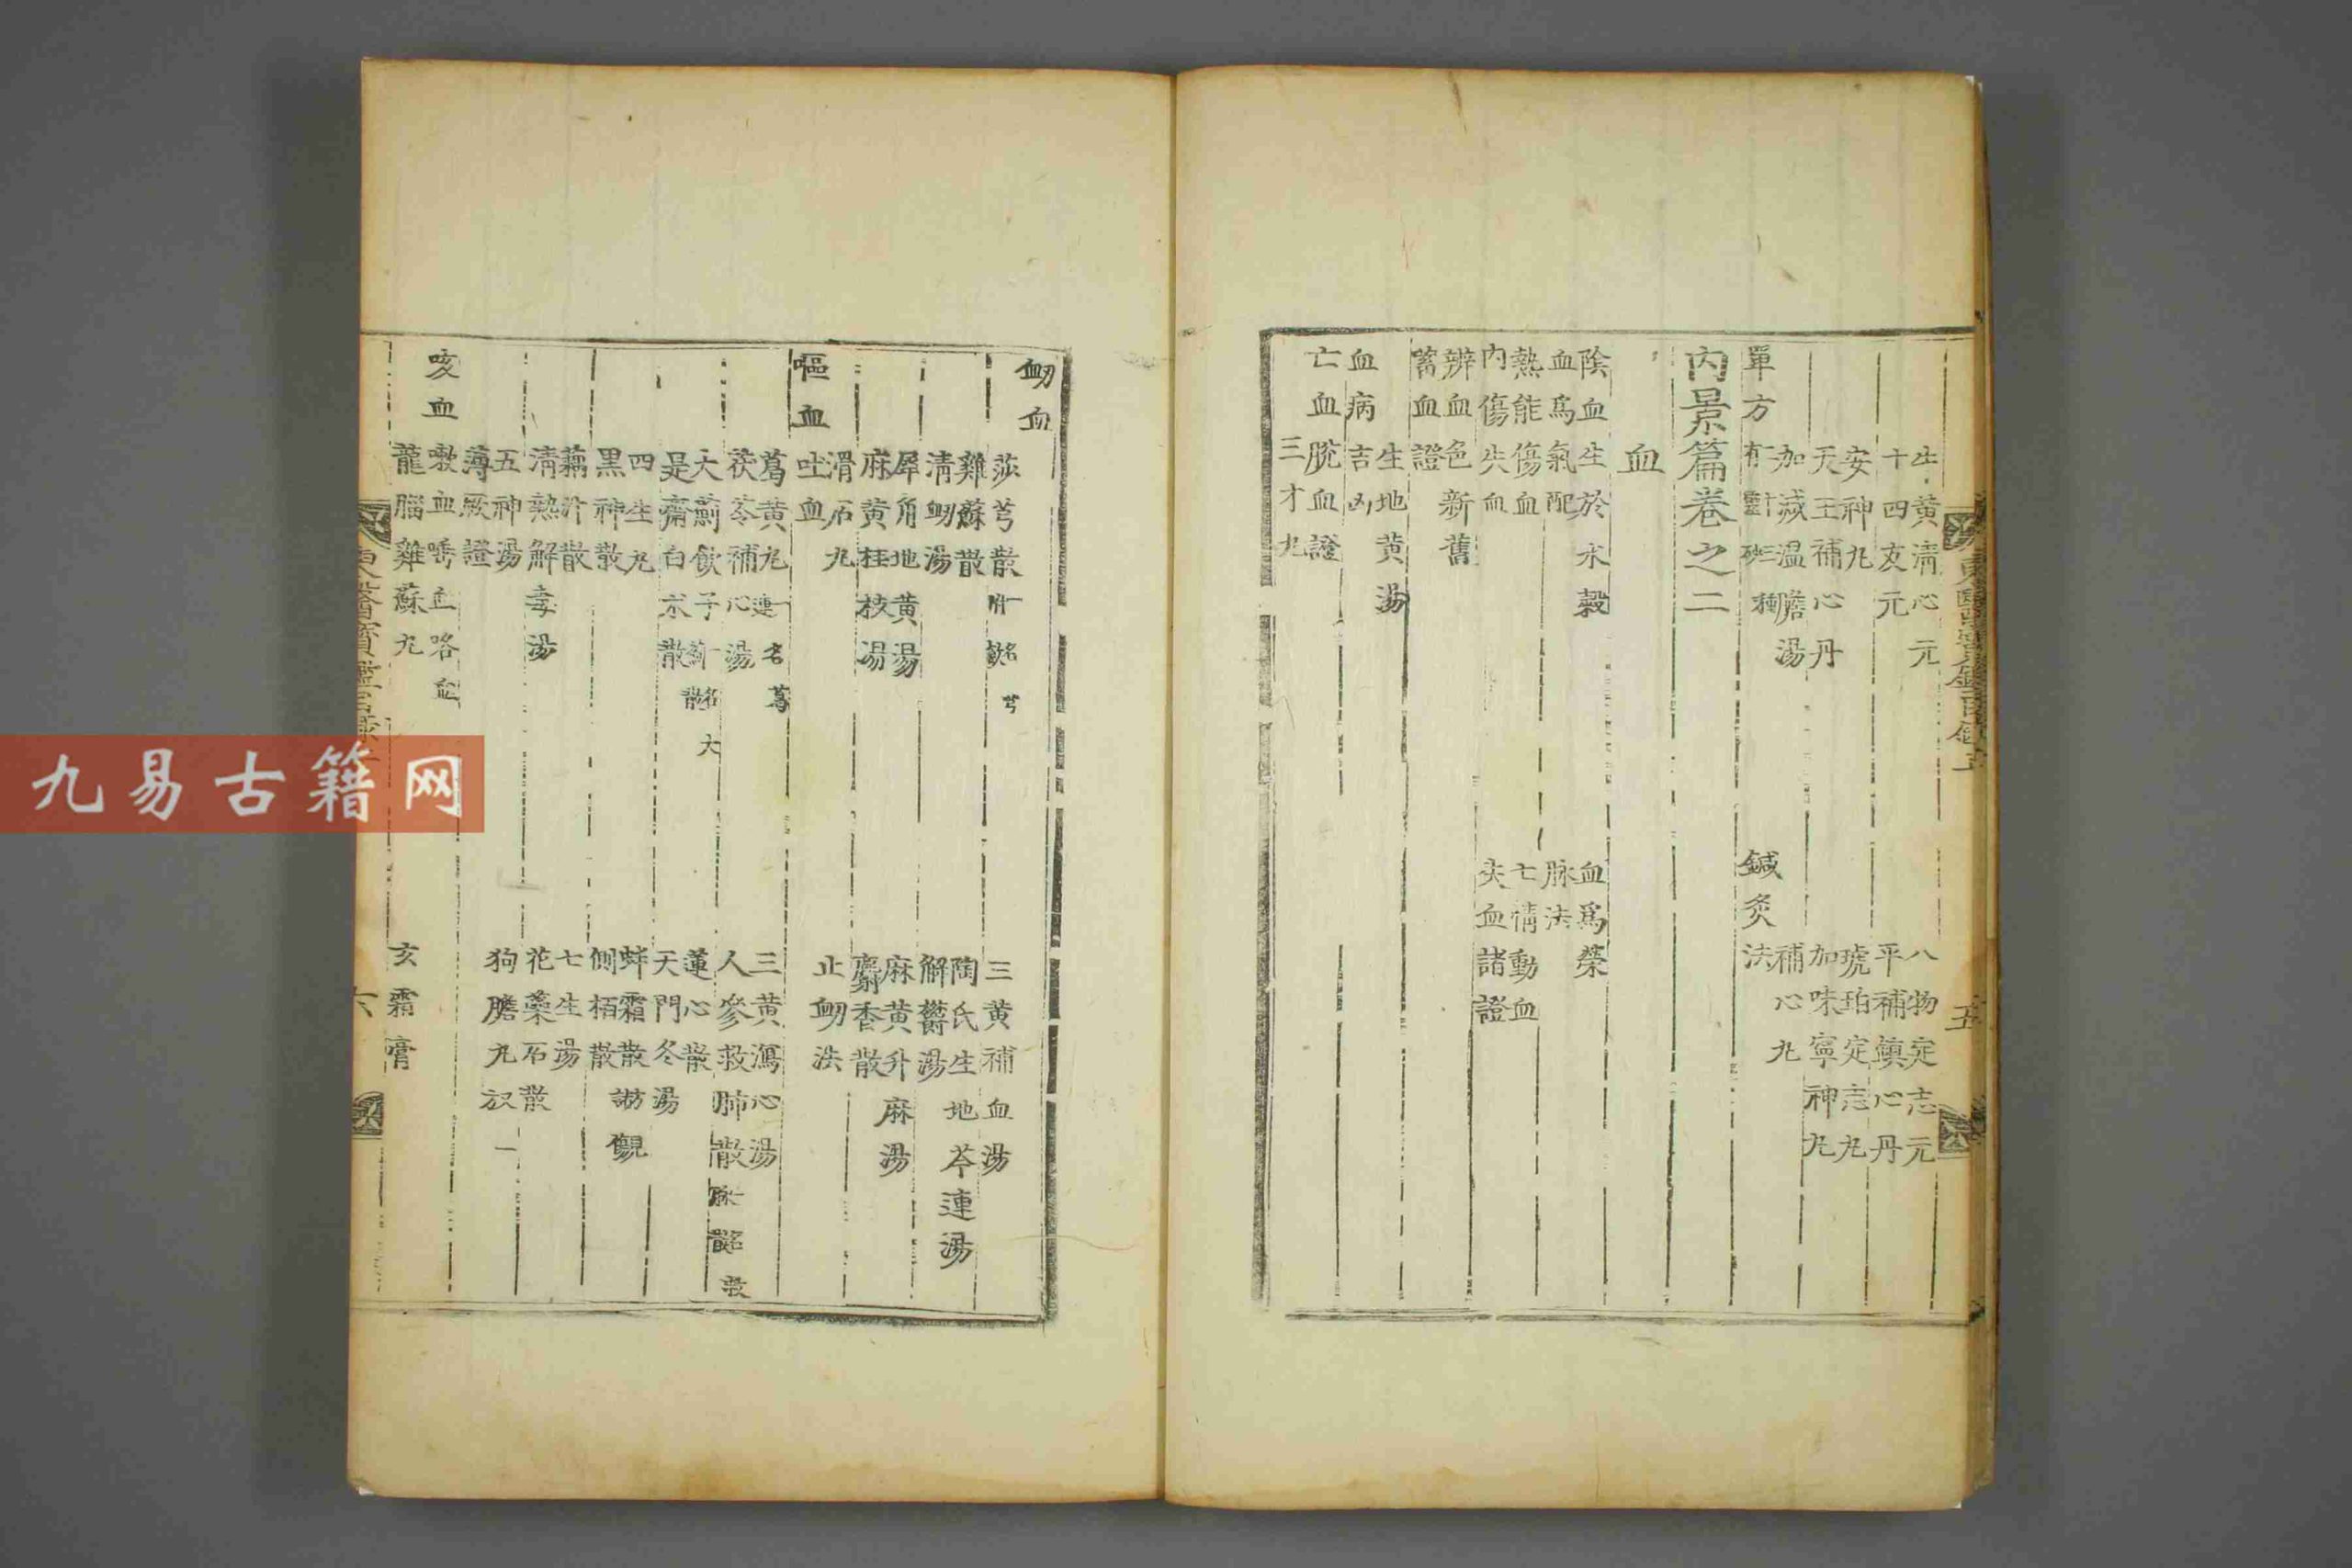 東醫寶鑑目錄上
五
牛黃清心元
八物定志元
十四友元
平補鎮心丹
安神丸
琥珀定志丸
天王補心丹
加味寧神丸
加減溫膽湯
補心丸
單方
有二十三種
鍼灸法
內景篇卷之二
血
陰血生於水穀
血爲榮
血爲氣配
脉法
熱能傷血
七情動血
內傷失血
失血諸證
辨血色新舊
蓄血證
生地黃湯
血病吉凶
亡血脫血證
三才丸
衄血
莎芎散
三黃補血湯
雞蘇散
陶氏生地芩連湯
清衄湯
解鬱湯
犀角地黃湯
麻黃升麻湯
麻黃桂枝湯
麝香散
滑石丸
止衄法
嘔血吐血
葛黃丸
三黃瀉心湯
茯苓補心湯
人參救肺散
大薊飲子
蓮心散
是齋白朮散
天門冬湯
四生丸
蚌霜散
黑神散
側栢散
藕汁散
七生湯
清熱解毒湯
花蘂石散
五神湯
狗膽丸
薄厥證
咳血嗽血唾血咯血
龍腦雞蘇丸
玄霜膏
六
九易古籍网